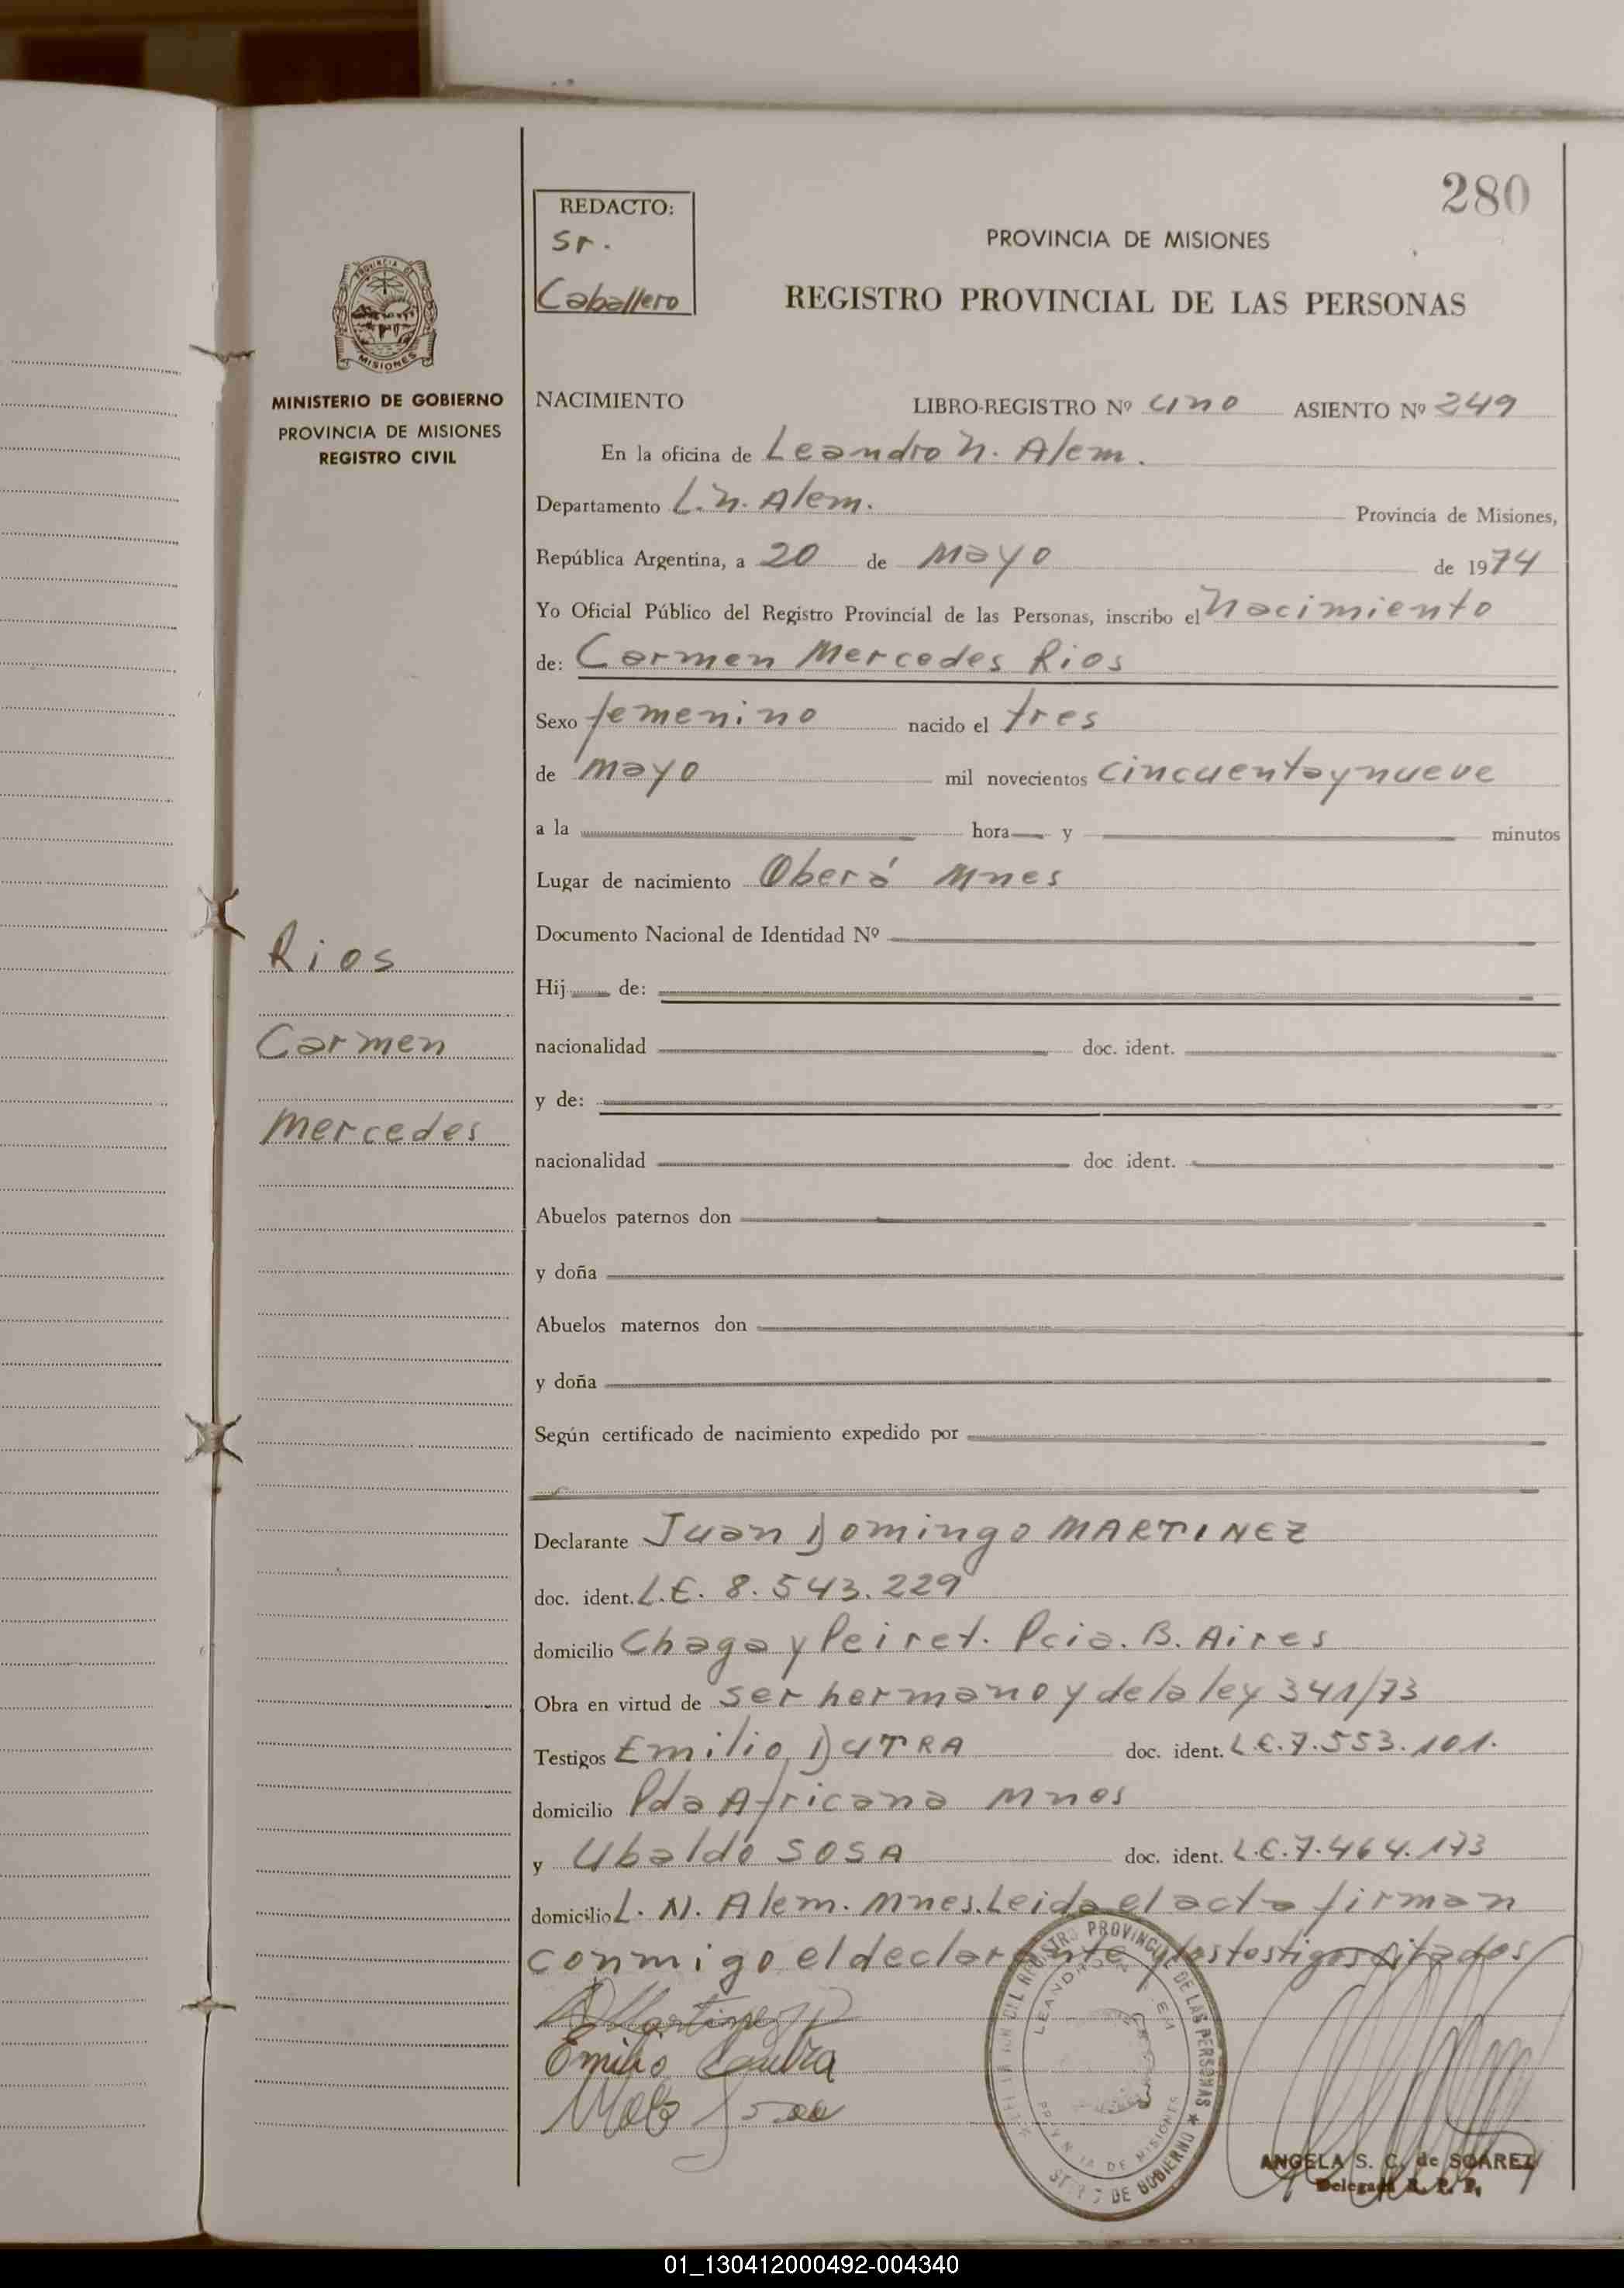 280
REDACTO:
Sr.
Caballero
PROVINCIA DE MISIONES
REGISTRO PROVINCIAL DE LAS PERSONAS
MISIONES
MINISTERIO DE GOBIERNO
PROVINCIA DE MISIONES
REGISTRO CIVIL
NACIMIENTO LIBRO-REGISTRO Nº uno ASIENTO Nº 249
En la oficina de Leandro N. Alem.
Departamento L. N. Alem. Provincia de Misiones,
República Argentina, a 20 de Mayo de 1974
Yo Oficial Público del Registro Provincial de las Personas, inscribo el Nacimiento
de: Carmen Mercedes Rios
Sexo femenino nacido el tres
de Mayo mil novecientos cincuenta y nueve
a la hora y minutos
Lugar de nacimiento Oberá Mnes
Documento Nacional de Identidad Nº
Hij de:
nacionalidad doc. ident.
y de:
nacionalidad doc ident.
Abuelos paternos don
y doña
Abuelos maternos don
y doña
Según certificado de nacimiento expedido por
Rios
Carmen
Mercedes
Declarante Juan Domingo MARTINEZ
doc. ident. L.E. 8.543.229
domicilio Chaga y Peiret. Pcia. B. Aires
Obra en virtud de ser hermano y de la ley 341/73
Testigos Emilio DUTRA doc. ident. L.E. 7.553.101.
domicilio Pda Africana Mnes
y Ubaldo SOSA doc. ident. L.E. 7.464.173
domicilio L. N. Alem. Mnes. Leida el acta firman
conmigo el declarante y los testigos citados
Emilio
PROVINCIAL DE LAS PERSONAS
DE MISIONES
DE GOBIERNO
ANGELA S. C. de SOAREZ
Delegada R. P. P.
01_130412000492-004340